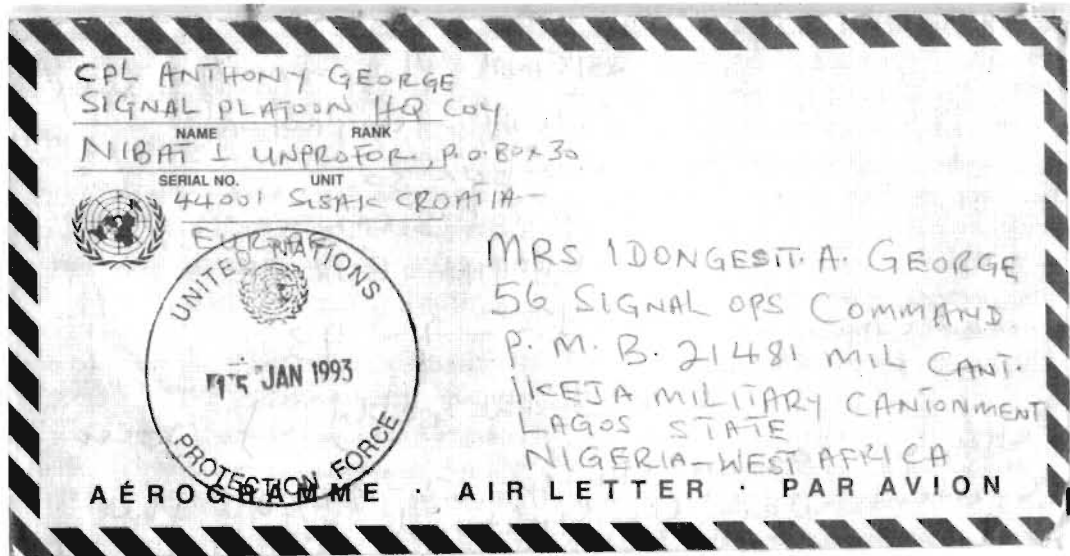 CPL ANTHONY GEORGE
SIGNAL PLATOON HQ COY
NAME RANK
NIBAT 1 UNPROFOR, P.O. BOX 30
SERIAL NO. UNIT
44001 SISAK CROATIA-
EUROPE
UNITED NATIONS
15 JAN 1993
PROTECTION FORCE
MRS IDONGESIT. A. GEORGE
56 SIGNAL OPS COMMAND
P. M. B. 21481 MIL CANT.
IKEJA MILITARY CANTONMENT
LAGOS STATE
NIGERIA-WEST AFRICA
AÉROGRAMME · AIR LETTER · PAR AVION